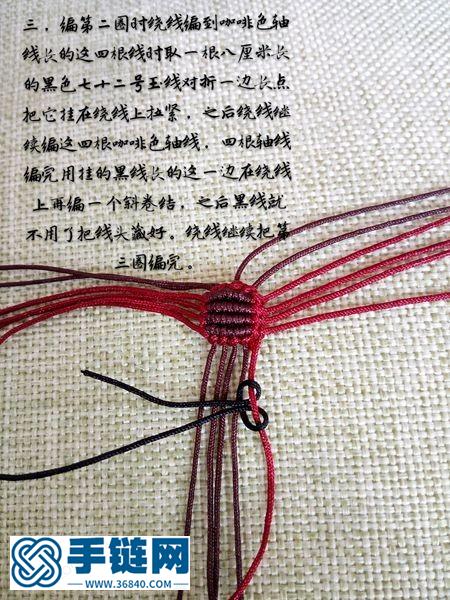 三，编第二圈时绕线编到咖啡色轴
线长的这四根线时取一根八厘米长
的黑色七十二号玉线对折一边长点
把它挂在绕线上拉紧，之后绕线继
续编这四根咖啡色轴线，四根轴线
编完用挂的黑线长的这一边在绕线
上再编一个斜卷结，之后黑线就
不用了把线头藏好。绕线继续把第
三圈编完。
手链网
WWW.36840.COM